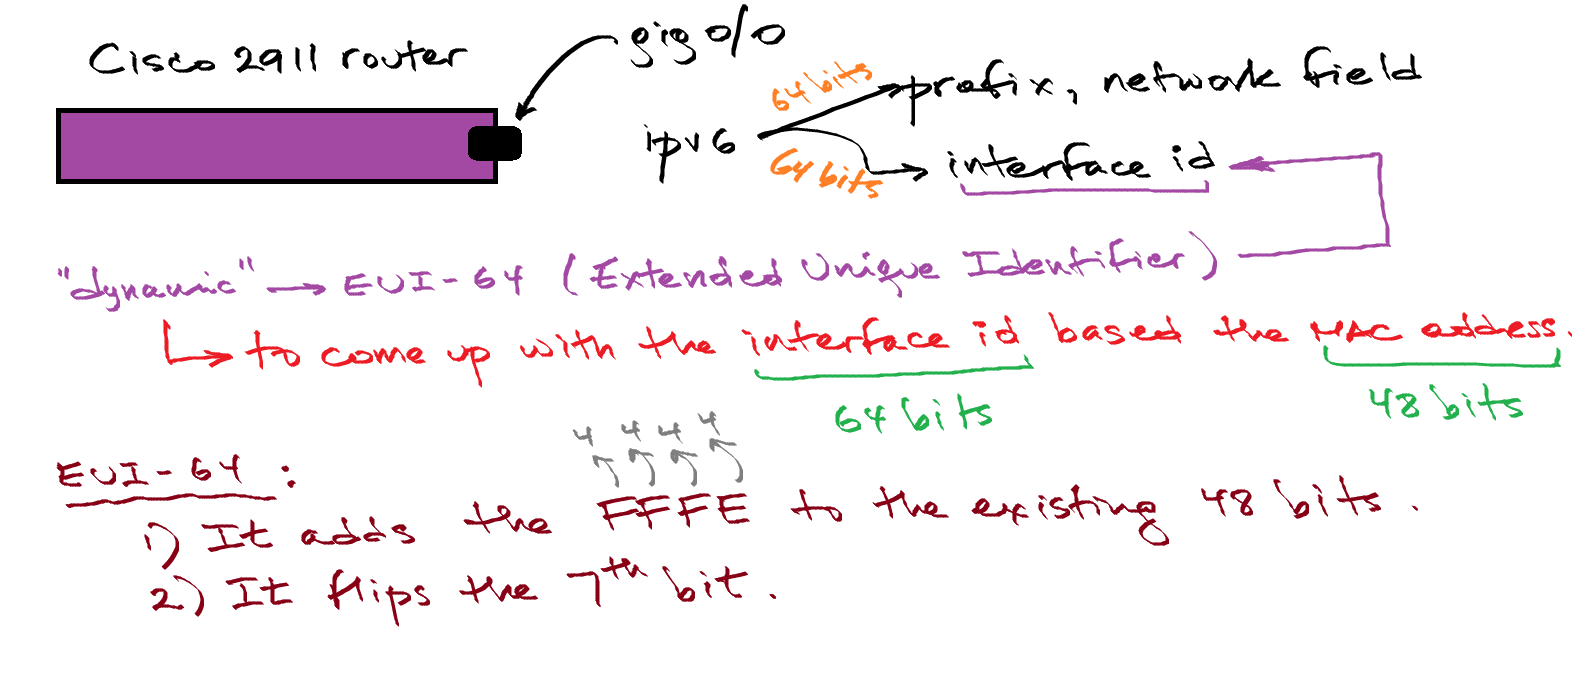 Cisco 2911 router
gig 0/0
64 bits
prefix, network field
ipv6
64 bits
interface id
"dynamic" → EUI-64 (Extended Unique Identifier)
to come up with the interface id based the MAC address.
64 bits
48 bits
4 4 4 4
EUI-64 :
1) It adds the FFFE to the existing 48 bits.
2) It flips the 7th bit.